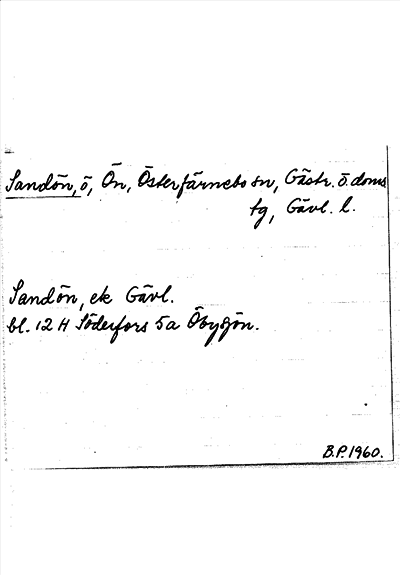 Sandön, ö, Ön, Österfärnebo sn, Gästr. ö. doms
tg, Gävl. l.
Sandön, ek Gävl.
bl. 12 H Söderfors 5a Öbyggön.
B.P. 1960.